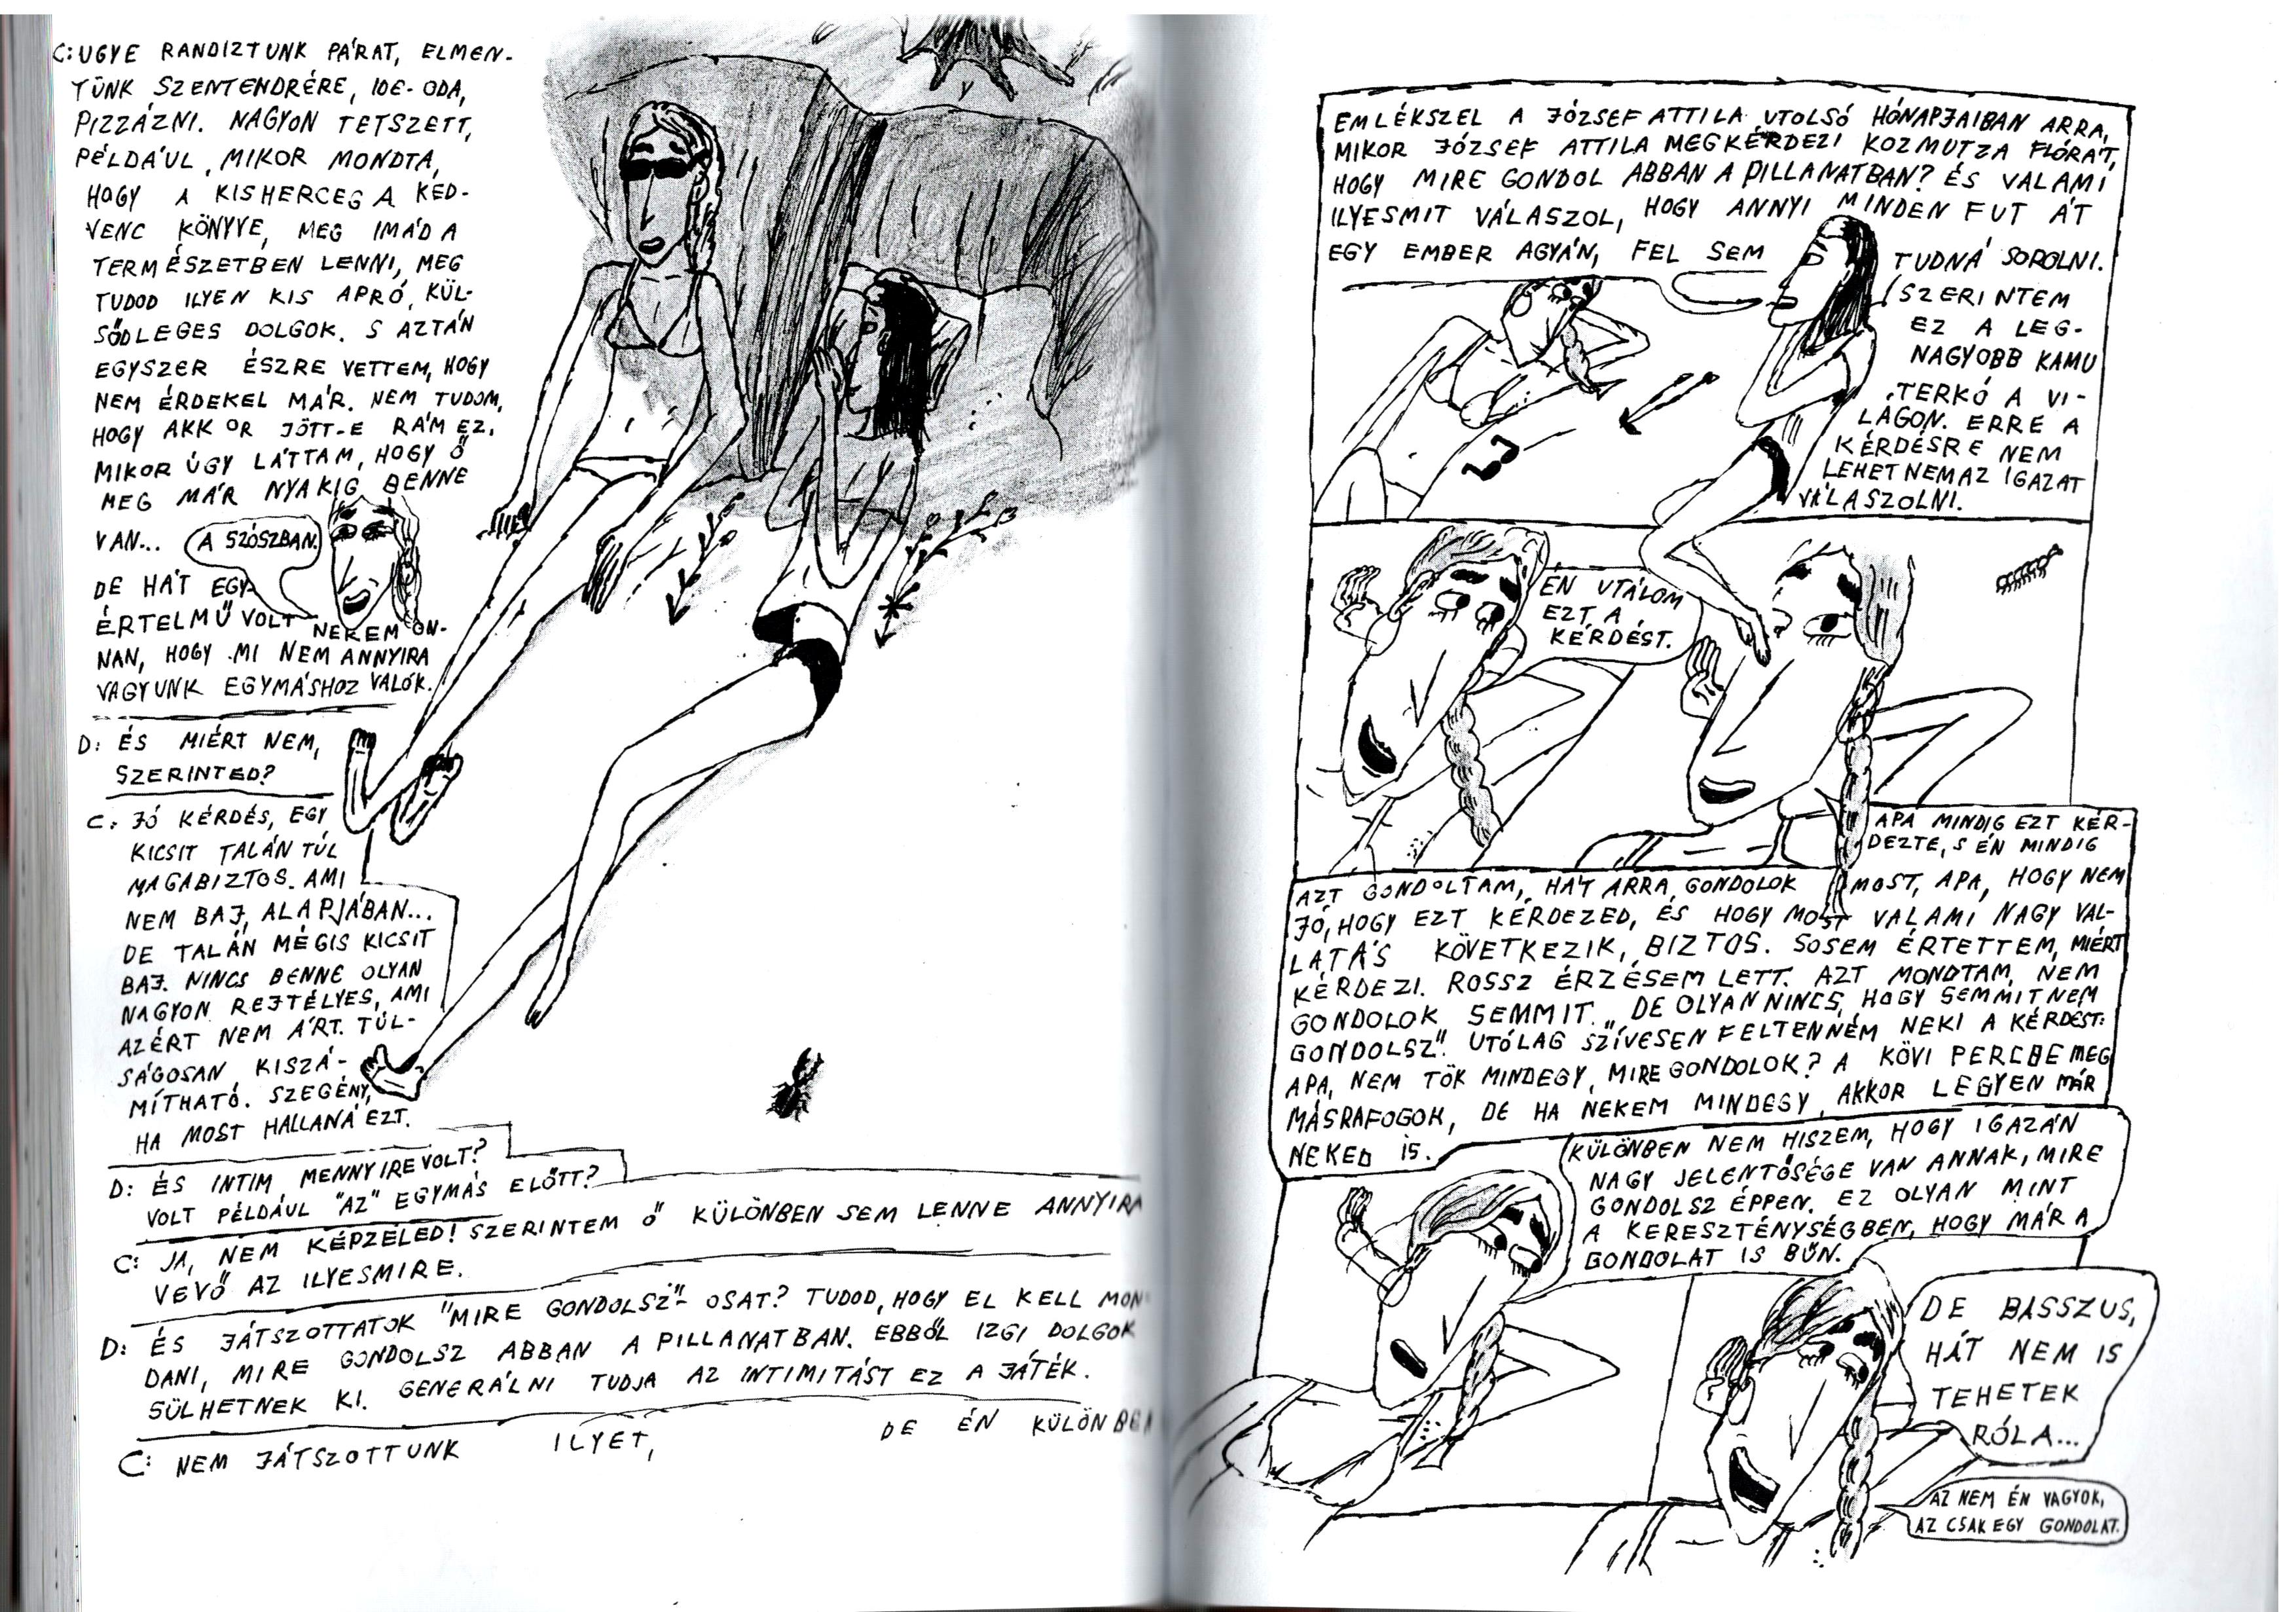 C: UGYE RANDIZTUNK PÁRAT, ELMEN-
TÜNK SZENTENDRÉRE, IDE-ODA,
PIZZÁZNI. NAGYON TETSZETT,
PÉLDÁUL, MIKOR MONDTA,
HOGY A KISHERCEG A KED-
VENC KÖNYVE, MEG IMÁD A
TERMÉSZETBEN LENNI, MEG
TUDOD ILYEN KIS APRÓ, KÜL-
SŐDLEGES DOLGOK. S AZTÁN
EGYSZER ÉSZRE VETTEM, HOGY
NEM ÉRDEKEL MÁR. NEM TUDOM,
HOGY AKKOR JÖTT-E RÁM EZ,
MIKOR ÚGY LÁTTAM, HOGY Ő
MEG MÁR NYAKIG BENNE
VAN...
A SZÓSZBAN.
DE HÁT EGY-
ÉRTELMŰ VOLT NEKEM ON-
NAN, HOGY MI NEM ANNYIRA
VAGYUNK EGYMÁSHOZ VALÓK.
D: ÉS MIÉRT NEM,
SZERINTED?
C: JÓ KÉRDÉS, EGY
KICSIT TALÁN TÚL
MAGABIZTOS. AMI
NEM BAJ, ALAPJÁBAN...
DE TALÁN MÉGIS KICSIT
BAJ. NINCS BENNE OLYAN
NAGYON REJTÉLYES, AMI
AZÉRT NEM ÁRT. TÚL-
SÁGOSAN KISZÁ-
MÍTHATÓ. SZEGÉNY,
HA MOST HALLANÁ EZT.
D: ÉS INTIM MENNYIRE VOLT?
VOLT PÉLDÁUL "AZ" EGYMÁS ELŐTT?
C: JA, NEM KÉPZELED! SZERINTEM Ő KÜLÖNBEN SEM LENNE ANNYIRA
VEVŐ AZ ILYESMIRE.
D: ÉS JÁTSZOTTATOK "MIRE GONDOLSZ"-OSAT? TUDOD, HOGY EL KELL MON
DANI, MIRE GONDOLSZ ABBAN A PILLANATBAN. EBBŐL IZGI DOLGOK
SÜLHETNEK KI. GENERÁLNI TUDJA AZ INTIMITÁST EZ A JÁTÉK.
C: NEM JÁTSZOTTUNK ILYET, DE ÉN KÜLÖNBEN
EMLÉKSZEL A JÓZSEF ATTILA UTOLSÓ HÓNAPJAIBAN ARRA,
MIKOR JÓZSEF ATTILA MEGKÉRDEZI KOZMUTZA FLÓRÁT,
HOGY MIRE GONDOL ABBAN A PILLANATBAN? ÉS VALAMI
ILYESMIT VÁLASZOL, HOGY ANNYI MINDEN FUT ÁT
EGY EMBER AGYÁN, FEL SEM
TUDNÁ SOROLNI.
SZERINTEM
EZ A LEG-
NAGYOBB KAMU
TERKÓ A VI-
LÁGON. ERRE A
KÉRDÉSRE NEM
LEHET NEM AZ IGAZAT
VÁLASZOLNI.
ÉN UTÁLOM
EZT A
KÉRDÉST.
APA MINDIG EZT KÉR-
DEZTE, S ÉN MINDIG
AZT GONDOLTAM, HÁT ARRA GONDOLOK MOST, APA, HOGY NEM
JÓ, HOGY EZT KÉRDEZED, ÉS HOGY MOST VALAMI NAGY VAL-
LATÁS KÖVETKEZIK, BIZTOS. SOSEM ÉRTETTEM, MIÉRT
KÉRDEZI. ROSSZ ÉRZÉSEM LETT. AZT MONDTAM, NEM
GONDOLOK SEMMIT. „DE OLYAN NINCS, HOGY SEMMIT NEM
GONDOLSZ". UTÓLAG SZÍVESEN FELTENNÉM NEKI A KÉRDÉST:
APA, NEM TÖK MINDEGY, MIRE GONDOLOK? A KÖVI PERCBE MEG
MÁSRAFOGOK, DE HA NEKEM MINDEGY, AKKOR LEGYEN MÁR
NEKED IS.
KÜLÖNBEN NEM HISZEM, HOGY IGAZÁN
NAGY JELENTŐSÉGE VAN ANNAK, MIRE
GONDOLSZ ÉPPEN. EZ OLYAN MINT
A KERESZTÉNYSÉGBEN, HOGY MÁR A
GONDOLAT IS BŰN.
DE BASSZUS,
HÁT NEM IS
TEHETEK
RÓLA...
AZ NEM ÉN VAGYOK,
AZ CSAK EGY GONDOLAT.